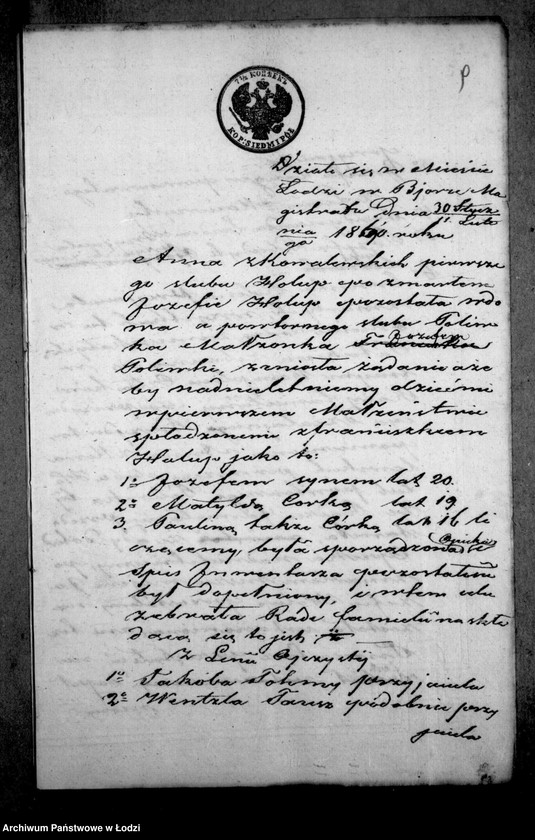 7½ КОПѢЕКЪ
KOP: SIEDM I PÓŁ
Działo się w Mieście
Łodzi w Bjorze Ma
gistratu Dnia 30 Stycz
nia 11 Lute
go 1860 roku
Anna z Kowalewskich pierwsze
go ślubu Holup po zmarłem
Jozefie Holup pozostała wdo
wa a powtornego ślubu Poliw
ka Małżonka Jozefem
Poliwki, zniosła żądanie aże
by nad nieletniemy dziećmi
w pierwszem Małżeństwie
spłodzonemi z Franciszkiem
Holup jako to:
1o Jozefem synem lat 20.
2o Matyldą Corką lat 19
3. Pauliną także Córką lat 16 li
czącemy, była sporządzona Opieka i
Spis Inwentarza pozostałości
był dopełniony, i w tem celu
zebrała Radę familii na skła
dającą się to jest:
Z Linii Ojczystej
1o Jakoba Tohmy przyjaciela
2o Wentzla Tausz podobnie przy
jaciela
Archiwum Państwowe w Łodzi